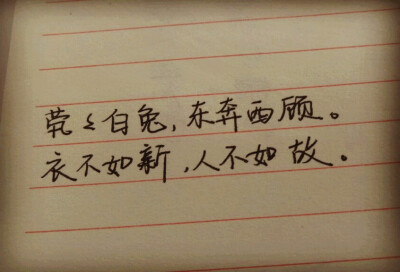 茕々白兔,东奔西顾。
衣不如新,人不如故。